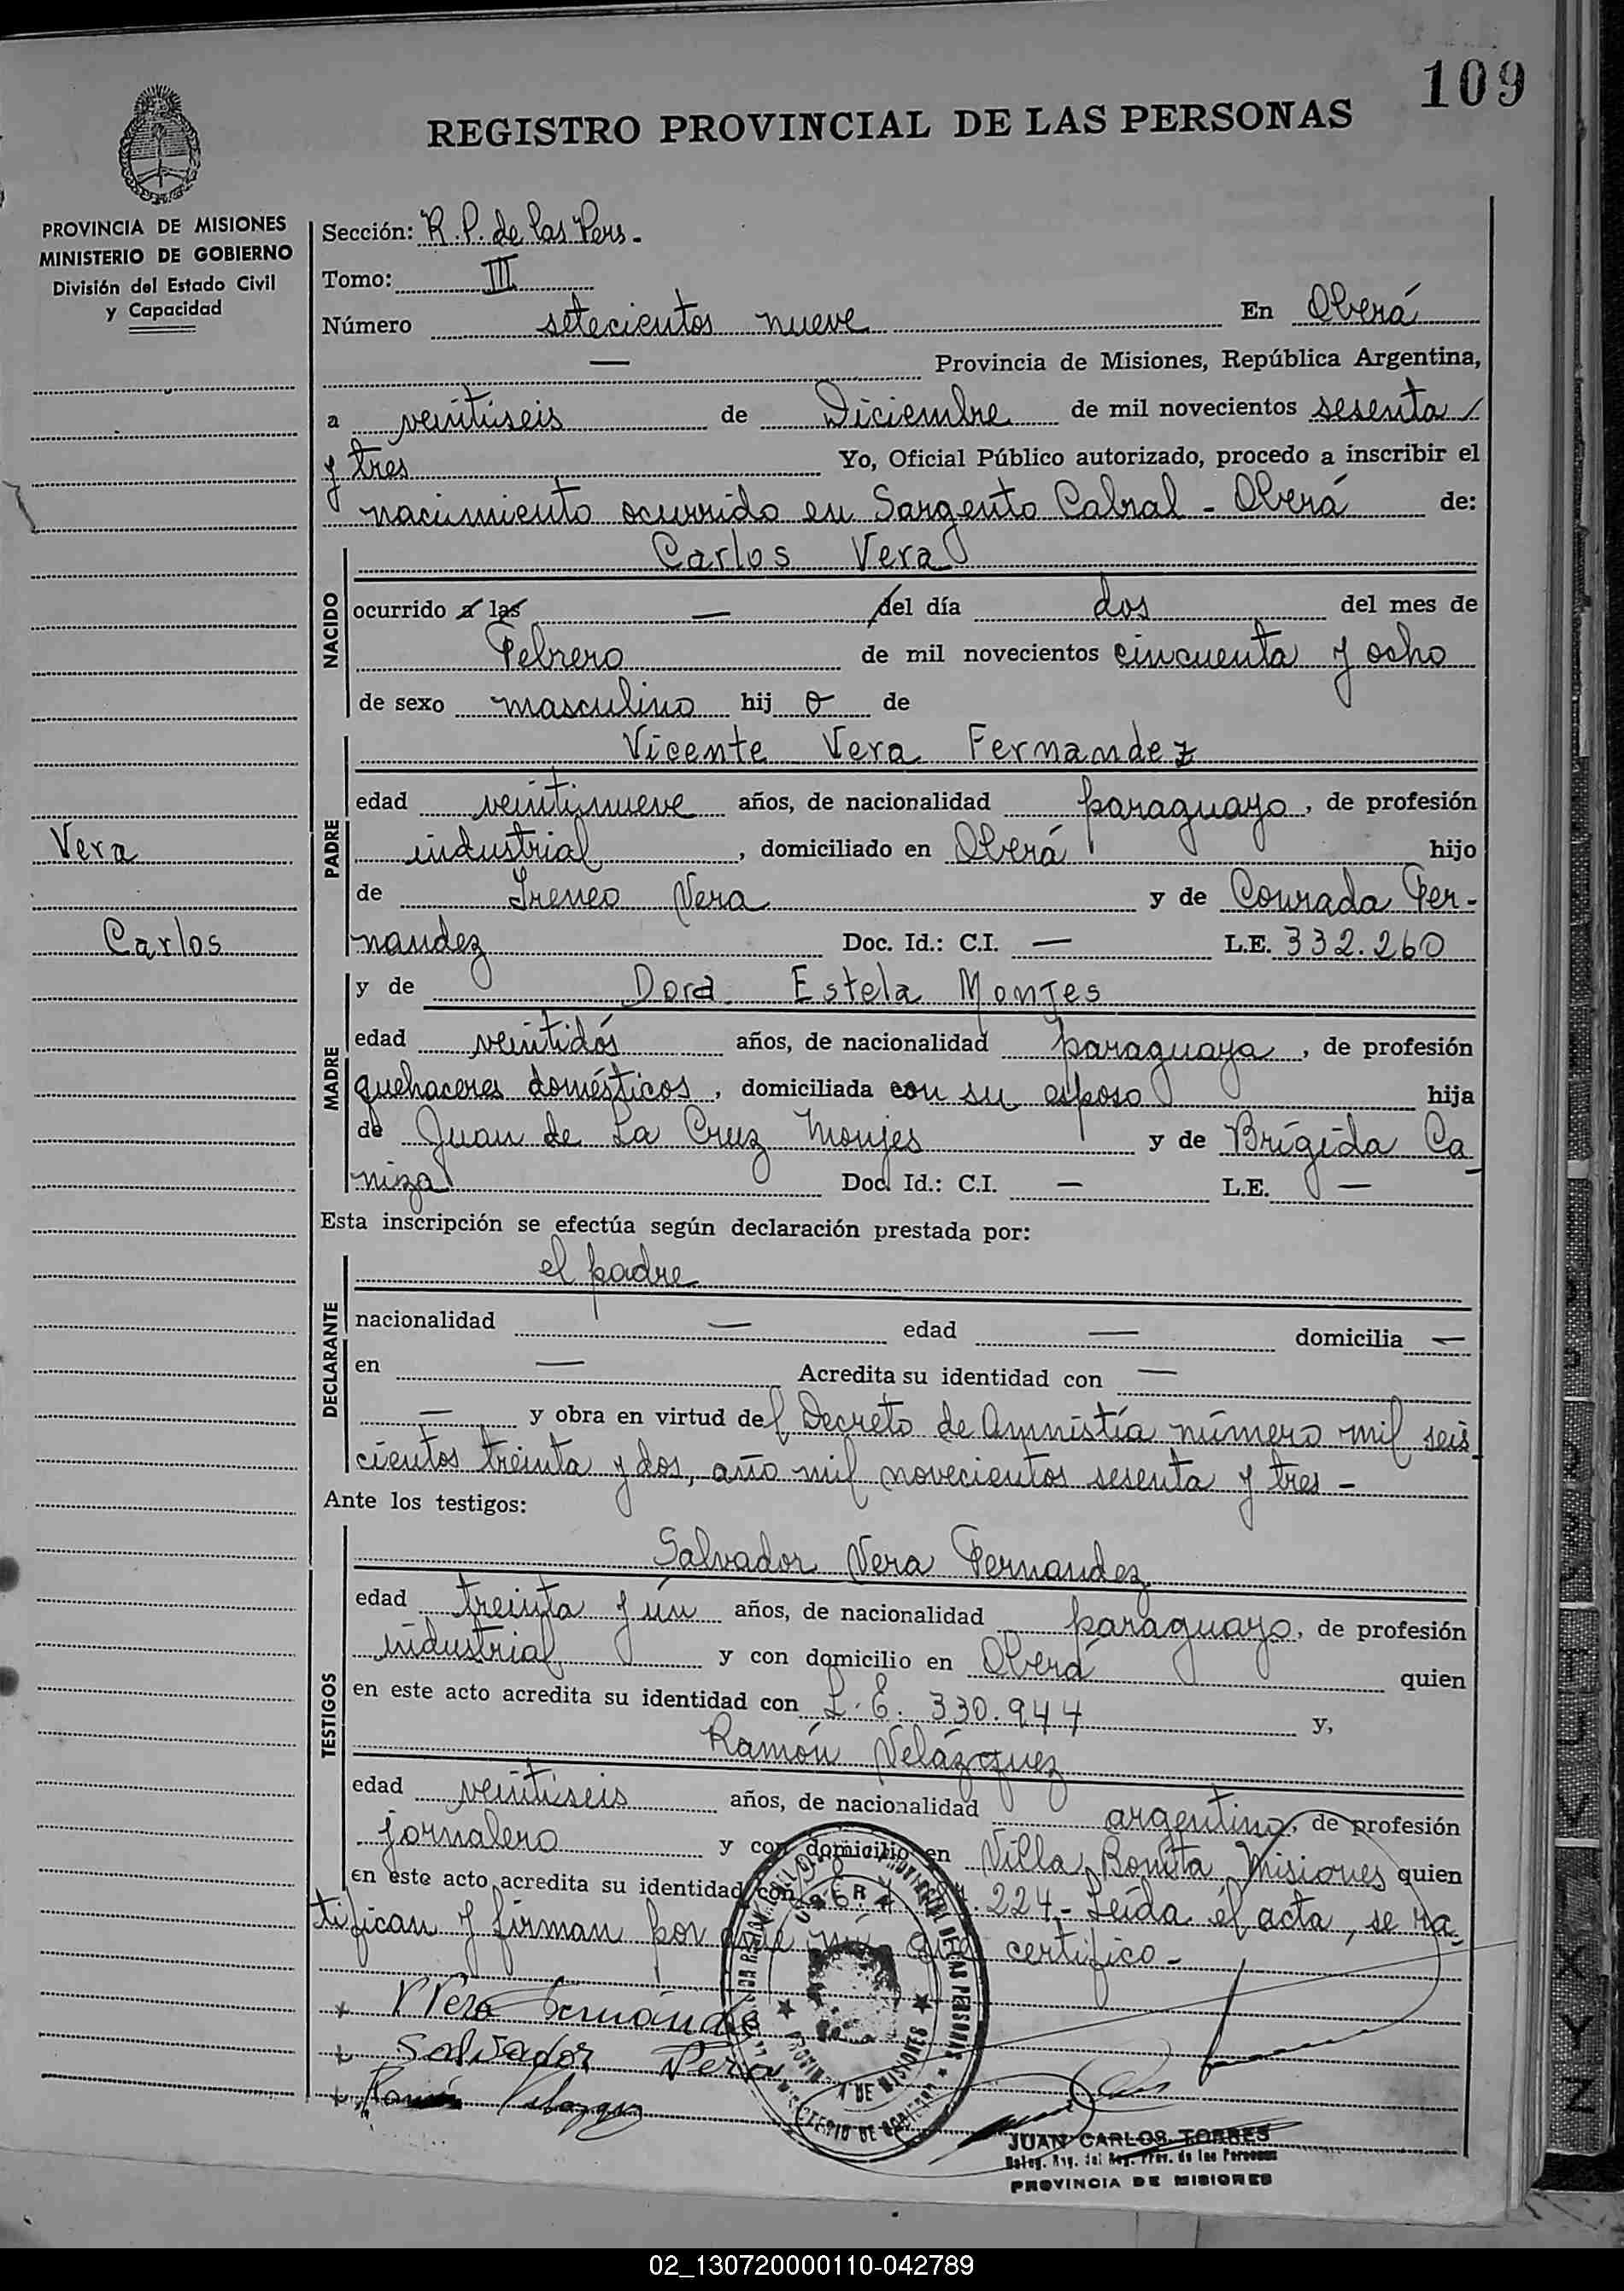 109
REGISTRO PROVINCIAL DE LAS PERSONAS
PROVINCIA DE MISIONES
MINISTERIO DE GOBIERNO
División del Estado Civil
y Capacidad
Sección: R. P. de las Pers.
Tomo: III
Número setecientos nueve En Oberá
— Provincia de Misiones, República Argentina,
a veintiseis de Diciembre de mil novecientos sesenta /
y tres Yo, Oficial Público autorizado, procedo a inscribir el
nacimiento ocurrido en Sargento Cabral - Oberá de:
NACIDO
Carlos Vera
ocurrido a las — del día dos del mes de
Febrero de mil novecientos cincuenta y ocho
de sexo masculino hij o de
PADRE
Vicente Vera Fernandez
edad veintinueve años, de nacionalidad paraguayo, de profesión
Vera
industrial, domiciliado en Oberá hijo
de Ireneo Vera y de Conrada Fer-
Carlos
nandez Doc. Id.: C.I. — L.E. 332.260
MADRE
y de Dora Estela Monjes
edad veintidós años, de nacionalidad paraguaya, de profesión
quehaceres domésticos, domiciliada con su esposo hija
de Juan de La Cruz Monjes y de Brígida Ca_
niza Doc. Id.: C.I. — L.E. —
Esta inscripción se efectúa según declaración prestada por:
DECLARANTE
el padre
nacionalidad — edad — domicilia —
en — Acredita su identidad con —
— y obra en virtud del Decreto de Amnistía número mil seis_
cientos treinta y dos, año mil novecientos sesenta y tres -
Ante los testigos:
TESTIGOS
Salvador Vera Fernandez
edad treinta y ún años, de nacionalidad paraguayo, de profesión
industrial y con domicilio en Oberá quien
en este acto acredita su identidad con L. E. 330.944 y,
Ramón Velázquez
edad veintiseis años, de nacionalidad argentino, de profesión
jornalero y con domicilio en Villa Bonita Misiones quien
en este acto acredita su identidad con 224.- Leída el acta, se ra_
tifican y firman por ante mí que certifico -
+ V Vera Fernánde
+ Salvador Vera
+ Ramón Velazquez
OBERA
PROVINCIAL DE LAS PERSONAS
PROVINCIA DE MISIONES
MINISTERIO DE GOBIERNO
JUAN CARLOS TORRES
Deleg. Reg. del Reg. Prov. de las Personas
PROVINCIA DE MISIONES
X Y Z
02_130720000110-042789